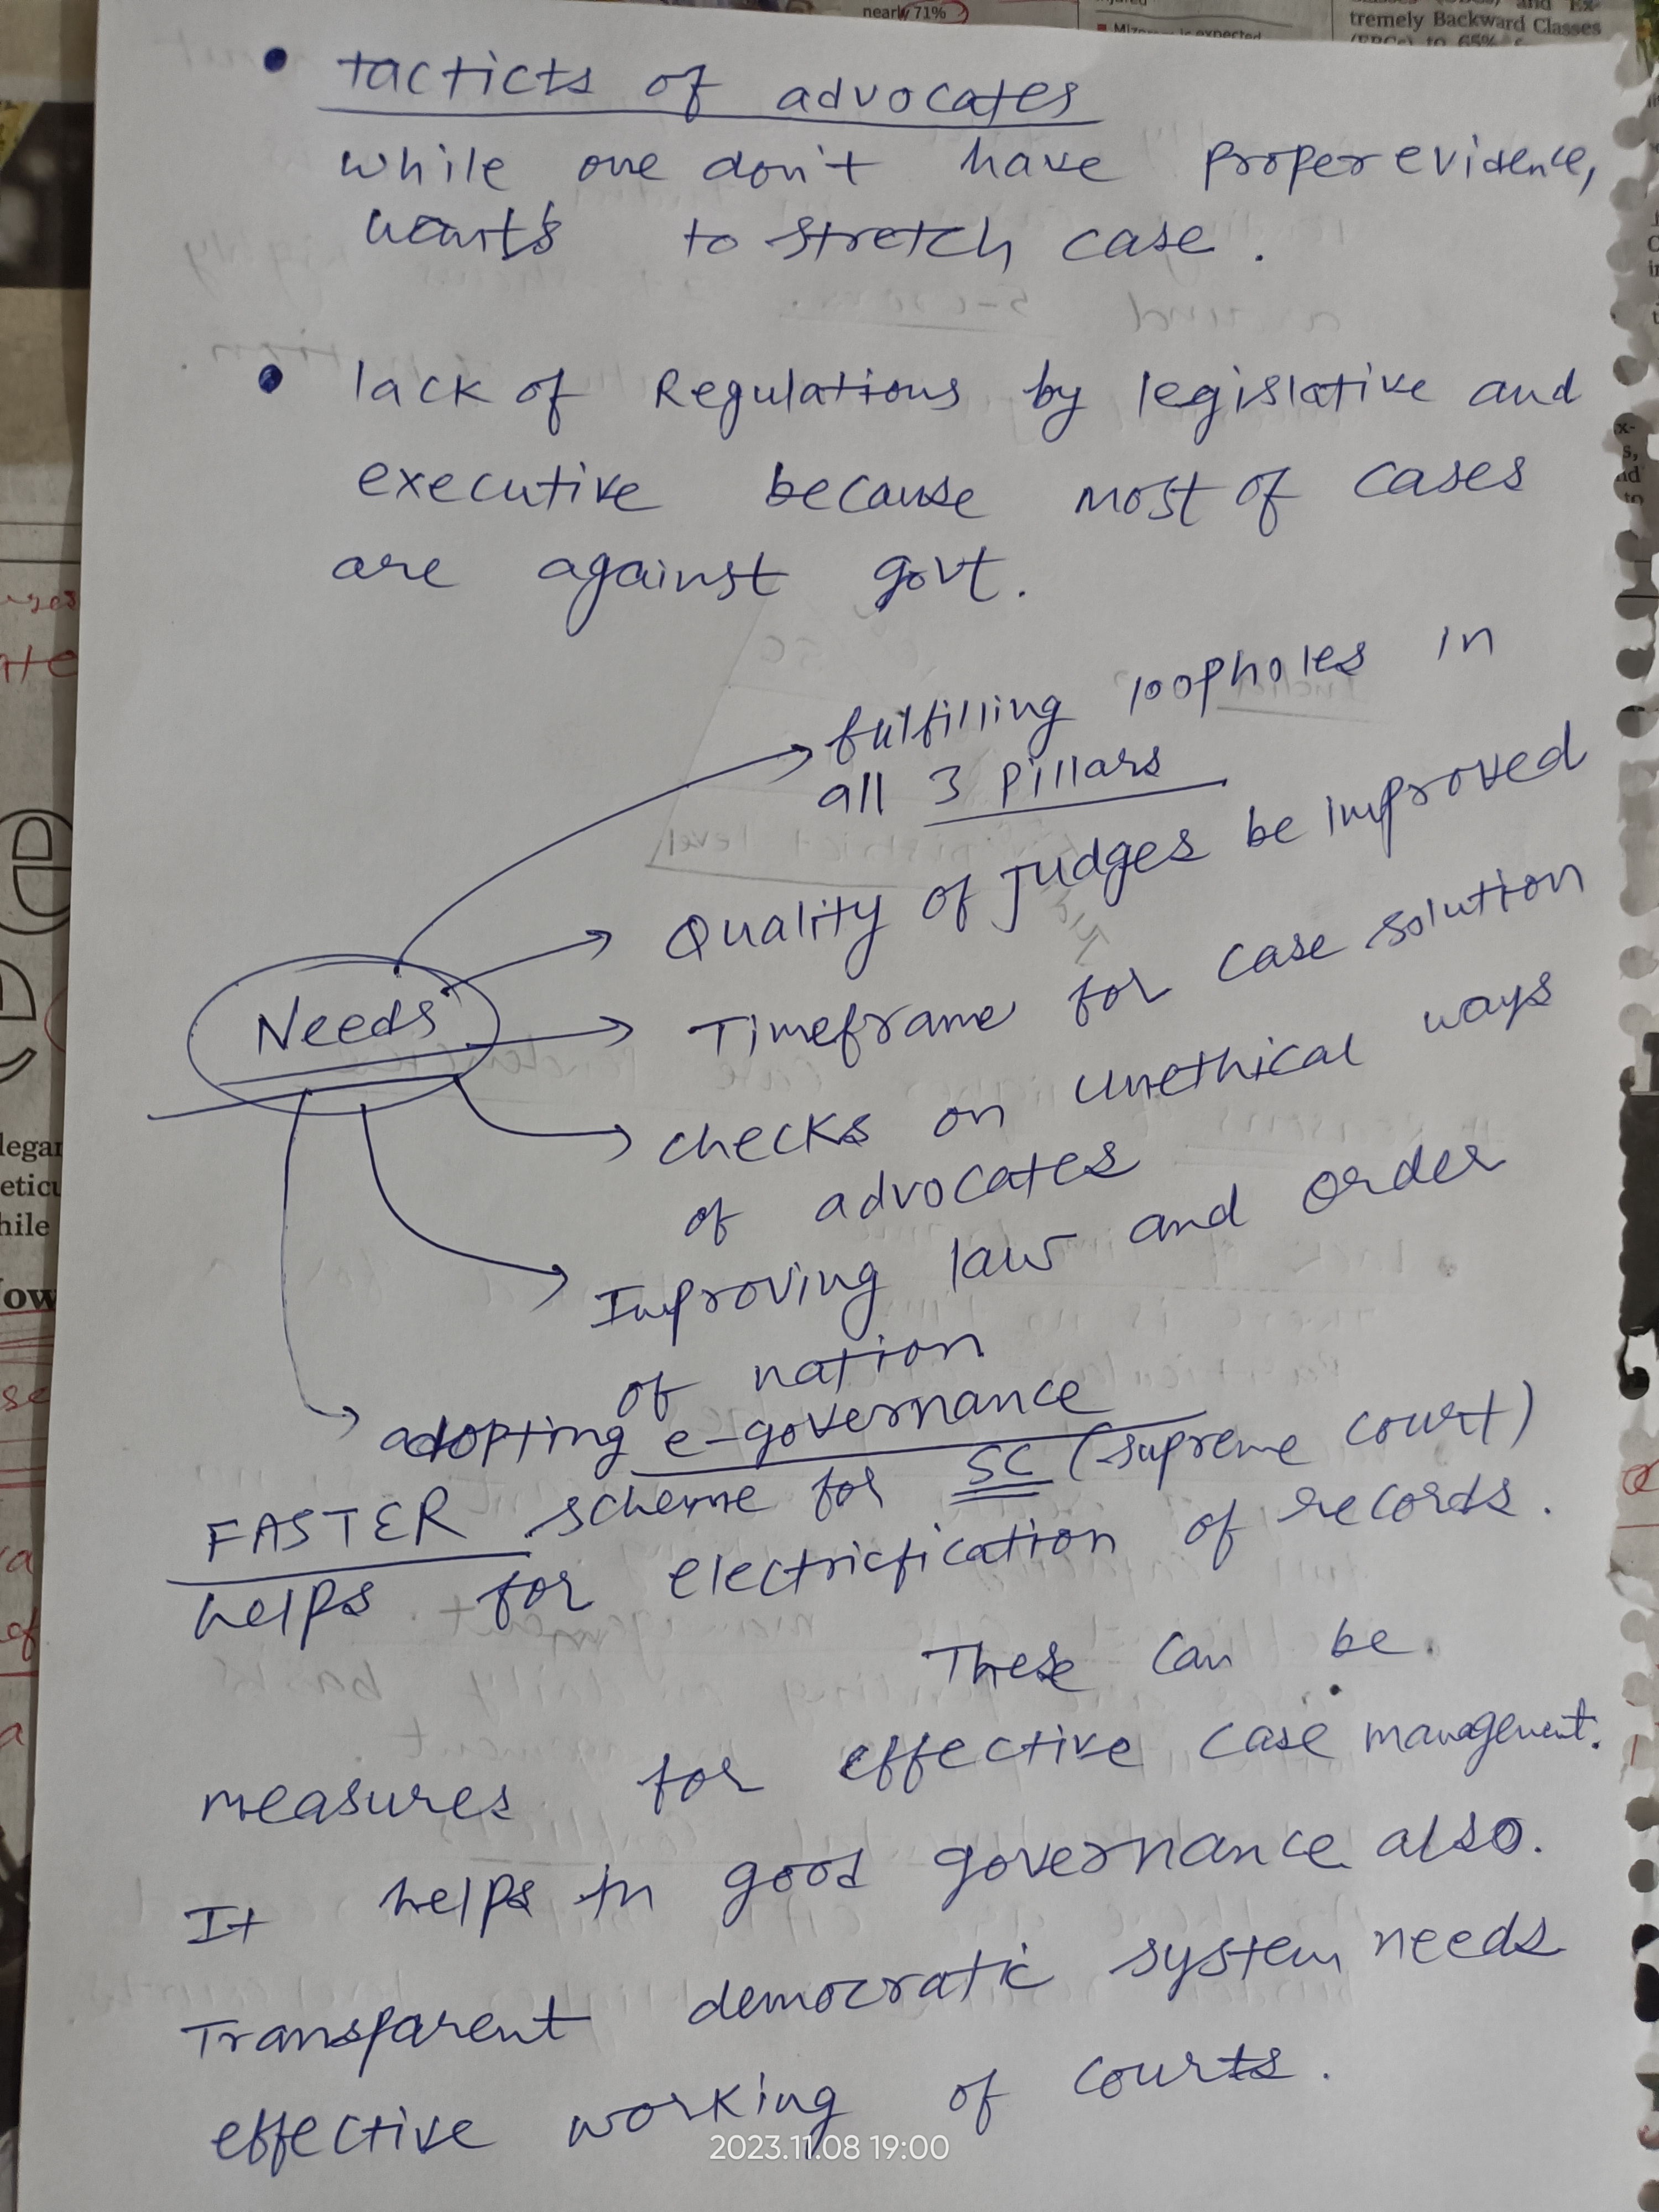 nearly 71%
tremely Backward Classes
• tacticts of advocates
while one don't have proper evidence,
wants to stretch case.
• lack of Regulations by legislative and
executive because most of cases
are against govt.
fulfilling loopholes in
all 3 pillars
Quality of Judges be improved
Needs
Timeframe for case solution
checks on unethical ways
of advocates
Improving law and order
of nation
adopting e-governance
FASTER scheme for SC (supreme court)
helps for electricfication of records.
These can be
measures for effective case management.
It helps in good governance also.
Transparent democratic system needs
effective working of courts.
2023.11.08 19:00